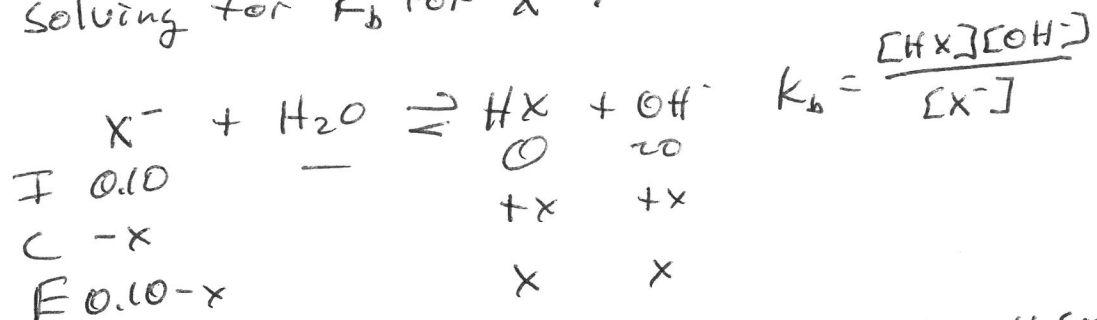 Solving for Kb for X
X⁻ + H₂O ⇌ HX + OH⁻ Kb = [HX][OH⁻] / [X⁻]
I 0.10 — 0 ~0
C -x +x +x
E 0.10-x x x